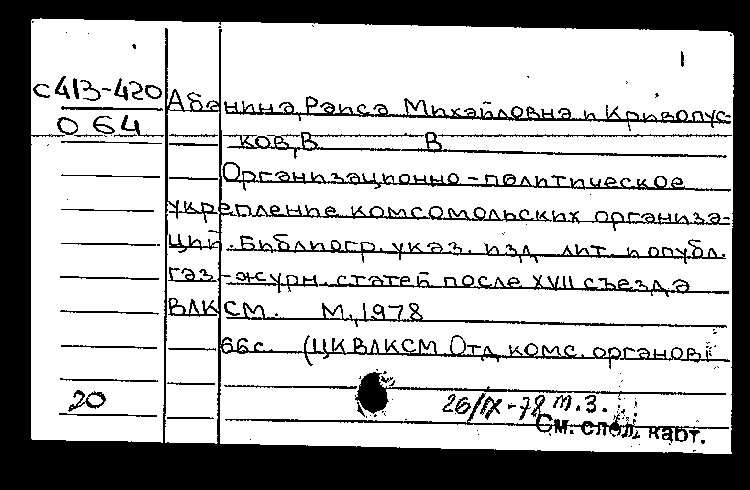 1
с413-420
064
Абанина, Раиса Михайловна и Кривопус-
ков, В В
Организационно-политическое
укрепление комсомольских организа-
ций. Библиогр. указ. изд. лит. и опубл.
газ.-журн. статей после XVII съезда
ВЛКСМ. М., 1978
66с. (ЦК ВЛКСМ. Отд. комс. органов
20
26/IX-78 т.з.
См. след. карт.